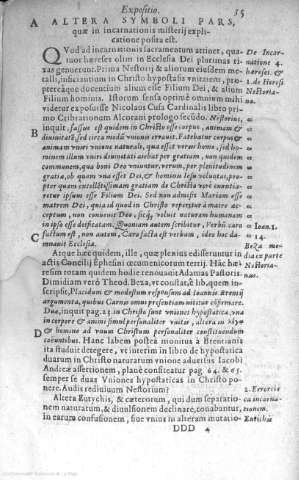 Expositio. 35
A ALTERA SYMBOLI PARS,
quæ in incarnationis misterij expli-
catione posita est.
QVod ad incarnationis sacramentum attinet, quatuor
hæreses olim in Ecclesia Dei plurimas
uas genuerunt. Prima Nestorij & aliorum eiusdem me-
talli, inficiantium in Christo hypostasin vnitam, pro-
pterea que docentium alium esse Filium Dei, & alium
Filium hominis. Istorum sensa optimè omnium mihi
videtur exposuisse Nicolaus Cusa Cardinalis libro primo
Cribrationum Alcorani prologo secundo. Nestorius,
inquit, fassus est quidem in Christo esse corpus, animam &
B diuinitatem, sed circa modũ vnionis errauit. Fatebatur corpus &
animam vniri vnione naturali, qua esset verus homo, sed ho-
minem illum vniri diuinitati aiebat per gratiam, non quidem
communem, qua boni Deo vniuntur, verùm, per plenitudinem
gratia, ob quam vna esset Dei, & hominis Iesu voluntas, pro-
pter quam excellentissimam gratiam de Christo verè enuntia-
retur ipsum esse Filium Dei. Sed non admisit Mariam esse
matrem Dei, quia id quod in Christo reperitur à matre ac-
ceptum, non conuenit Deo, sicq́, voluit naturam humanam
in ipso esse deificatam. Quoniam autem scribitur, Verbũ caro
C factum est, non autem, Caro facta est verbum, ideo hæc da-
mnauit Ecclesia.
Atque hæc quidem, ille, quæ plenius disseruntur in
actis Concilij Ephesini œcumenicorum tertij. Hãc hæ-
resim totam quidem hodie renouauit Adamus Pastoris.
Dimidiam verò Theod. Beza, vt constat è lib. quem in-
scripsit, Placidum & modestum responsum ad Ioannis
argumenta, quibus Carnis omni præsentiam nititur confirmare.
Dua, inquit pag. 23 in Christo sunt vniones hypostatica, vna
in corpore & animi simul personaliter vnitis, altera in
D & homine ad vnum Christum personaliter constituendum
coëuntibus. Hanc labem posteà monitus à Brentianis
ita studuit detegere, vt interim in libro de hypostatica
duarum in Christo naturarum vnione aduersus Iacobi
Andreæ assertionem, planè confiteatur pag. 64. & 65.
semper se duas Vniones hypostaticas in Christo po-
nere. Audis rediuiuum Nestorium?
Altera Eutychis, & cæterorum, qui dum separatio-
nem naturarum, & diuulsionem declinare, conabantur,
in earum confusionem, siue vnius in alteram mutatio-
DDD 4
De Incar-
natione 4.
hæreses. &
1. de Hæresi
Nestoria-
na.
Ioan. 1.
14.
Beza me-
dia ex parte
Nestoria-
nus.
2. Error circa
incarna-
tionem.
Eutichis